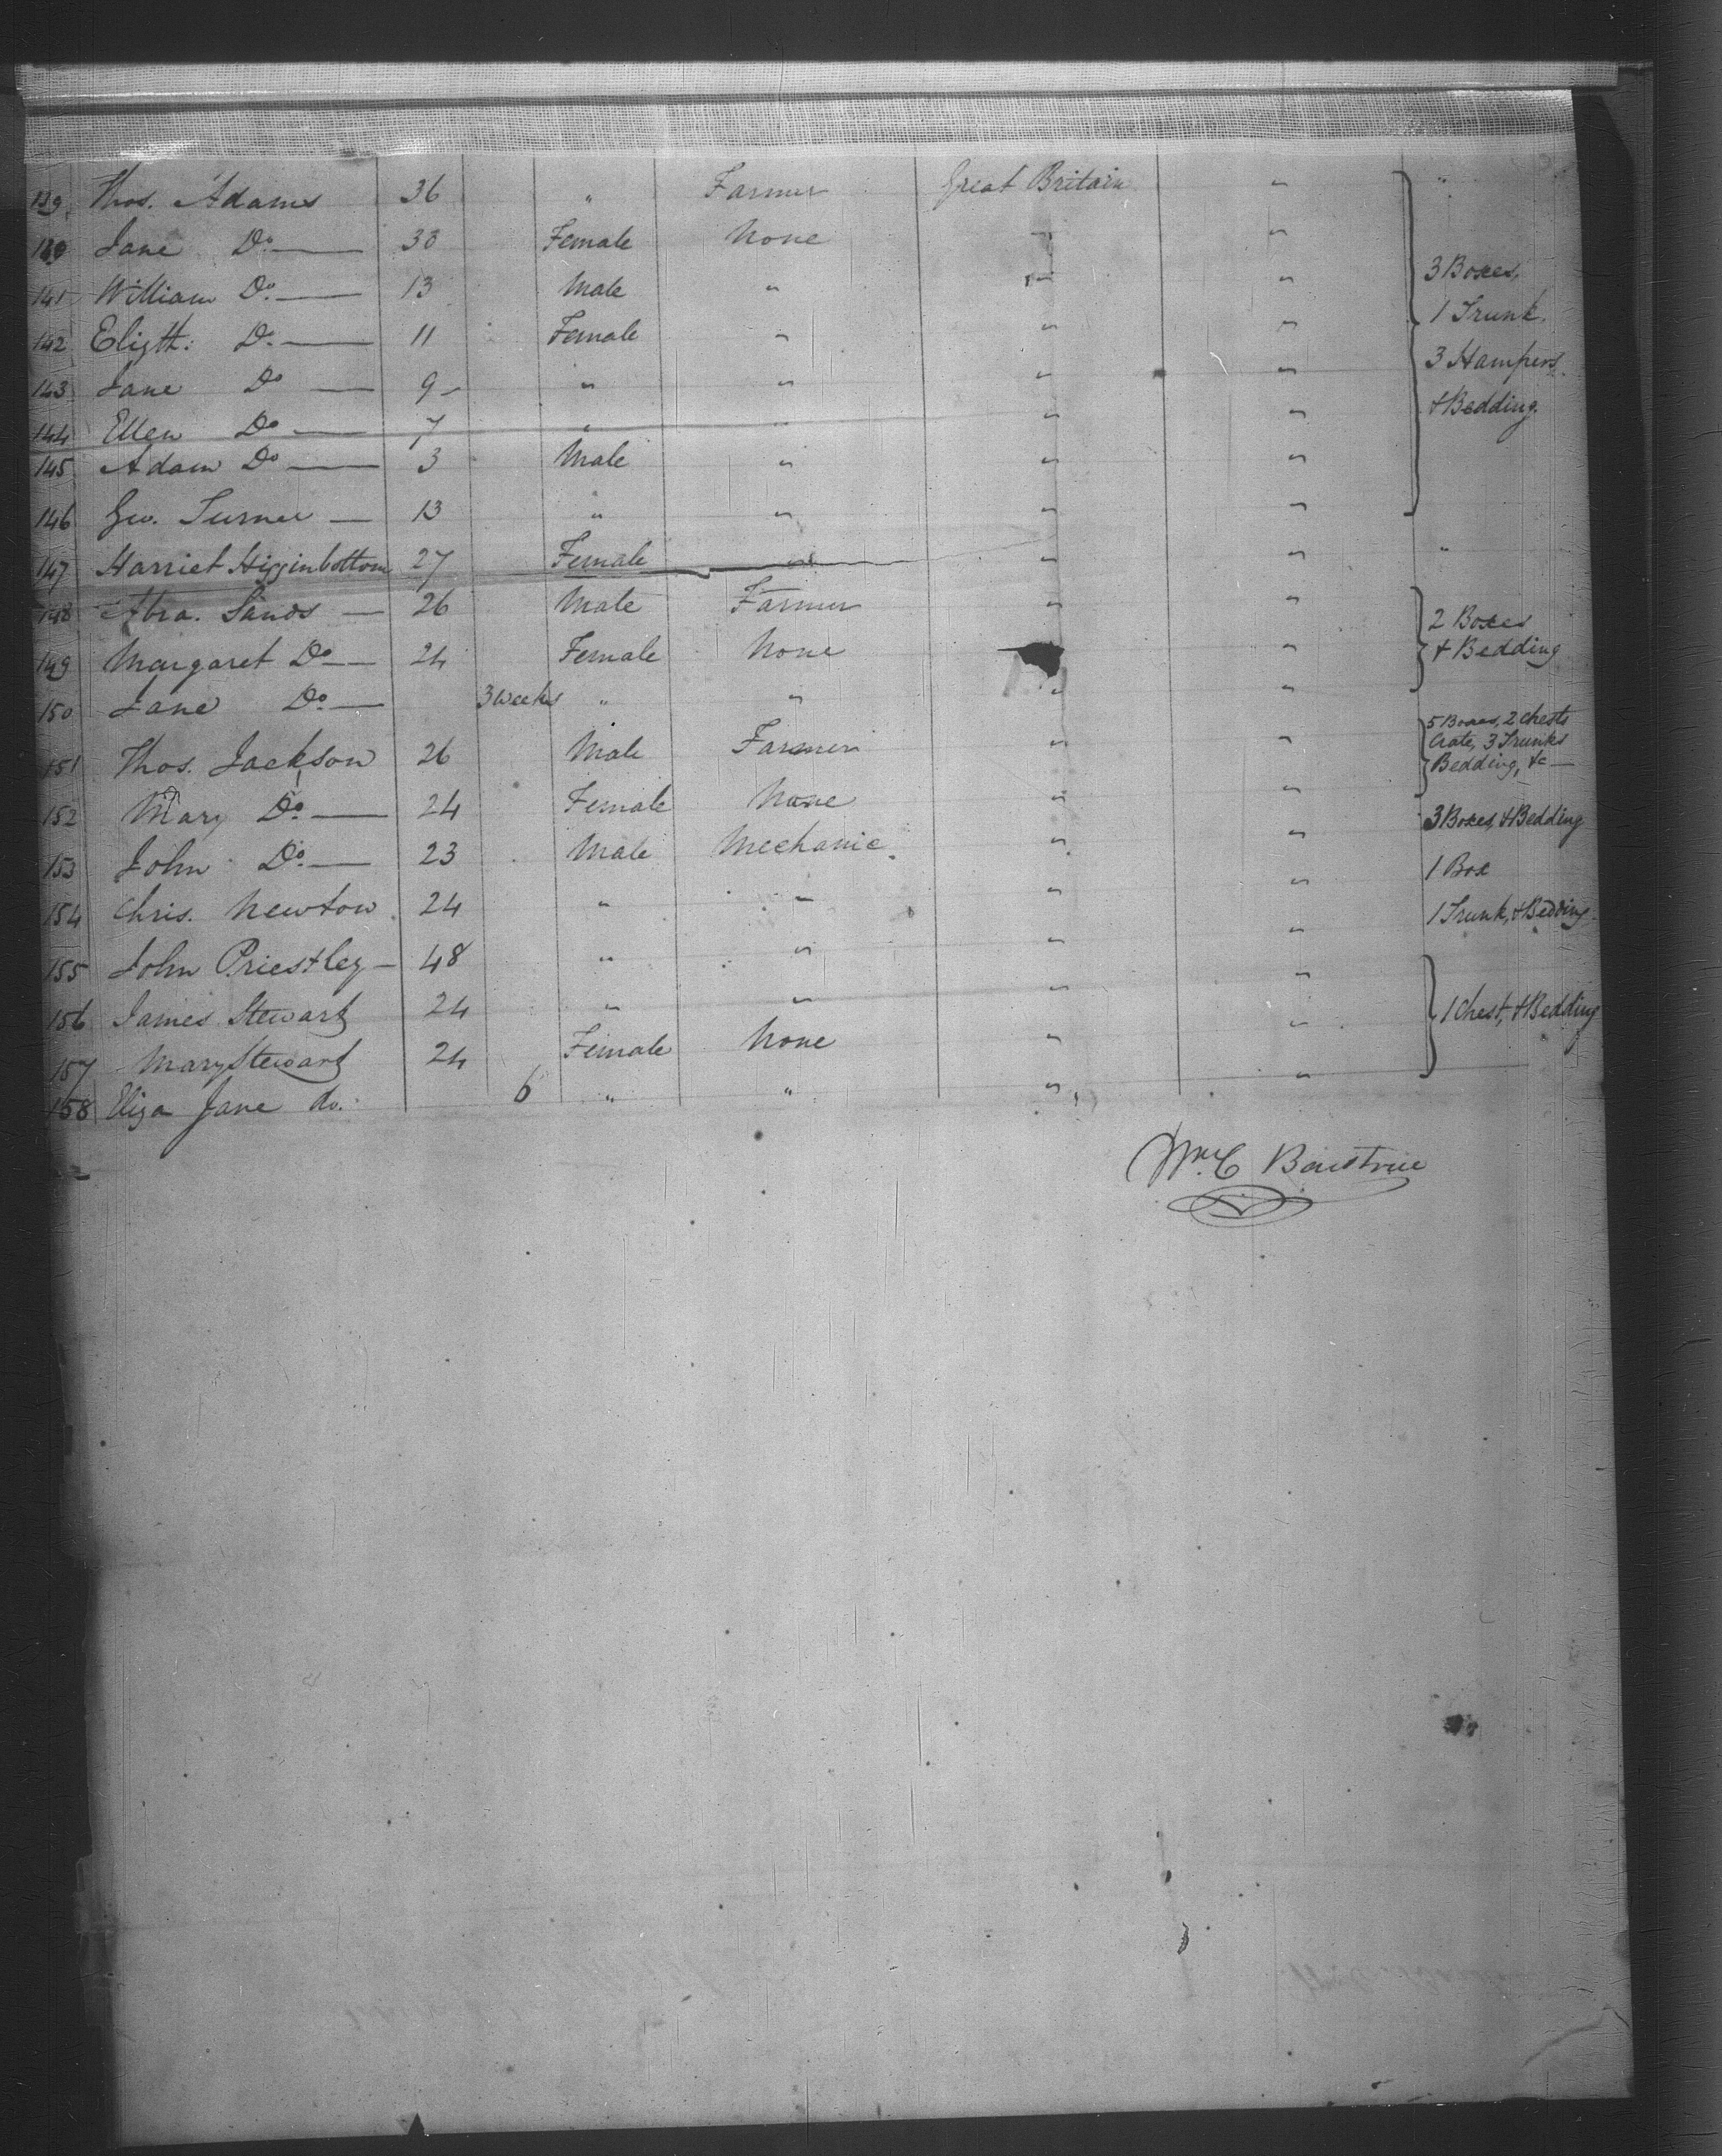 139 Thos. Adams 36 " Farmer Great Britain " "
140 Jane Do. 30 Female None " "
141 William Do. 13 Male " " " 3 Boxes,
142 Elizth: Do. 11 Female " " " 1 Trunk.
143 Jane Do 9 " " " " 3 Hampers
144 Ellen Do 7 " " " " & Bedding.
145 Adam Do 3 Male " " "
146 Geo. Turner 13 " " " "
147 Harriet Higginbottom 27 Female " " " "
148 Abra. Sands 26 Male Farmer " " 2 Boxes
149 Margaret Do 24 Female None " & Bedding
150 Jane Do. 3 weeks " " " "
151 Thos. Jackson 26 Male Farmer " " 5 Boxes, 2 Chests Crate, 3 Trunks Bedding, &c
152 Mary Do. 24 Female None " " 3 Boxes, & Bedding
153 John Do. 23 Male Mechanic " " 1 Box
154 Chris. Newton 24 " " " " 1 Trunk, & Bedding
155 John Priestley 48 " " " "
156 James Stewart 24 " " " " 1 Chest, & Bedding
157 Mary Stewart 24 Female None " "
158 Eliza Jane do. 6 " " " "
Wm. C